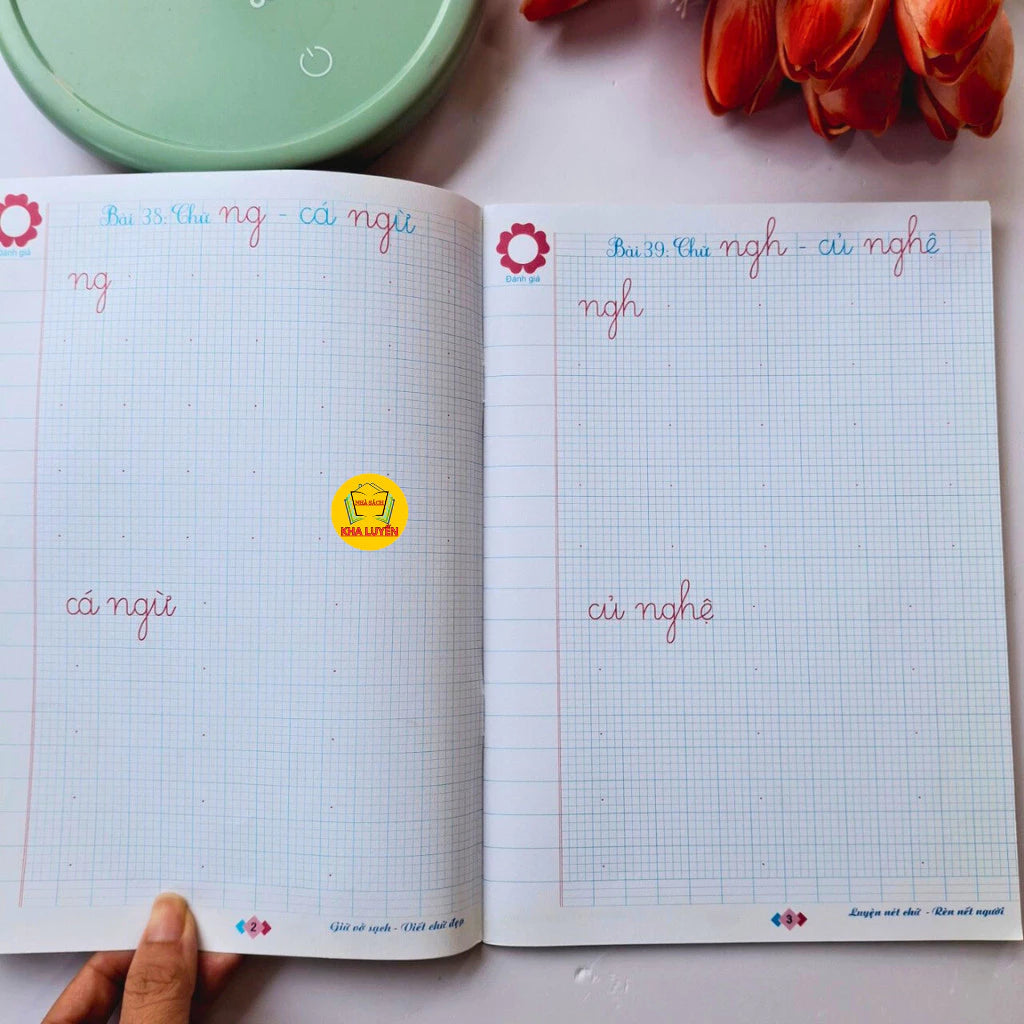 Bài 38: Chữ ng - cá ngừ
Đánh giá
ng
NHÀ SÁCH
KHA LUYẾN
cá ngừ
2
Giữ vở sạch - Viết chữ đẹp
Bài 39: Chữ ngh - củ nghệ
Đánh giá
ngh
củ nghệ
3
Luyện nét chữ - Rèn nết người